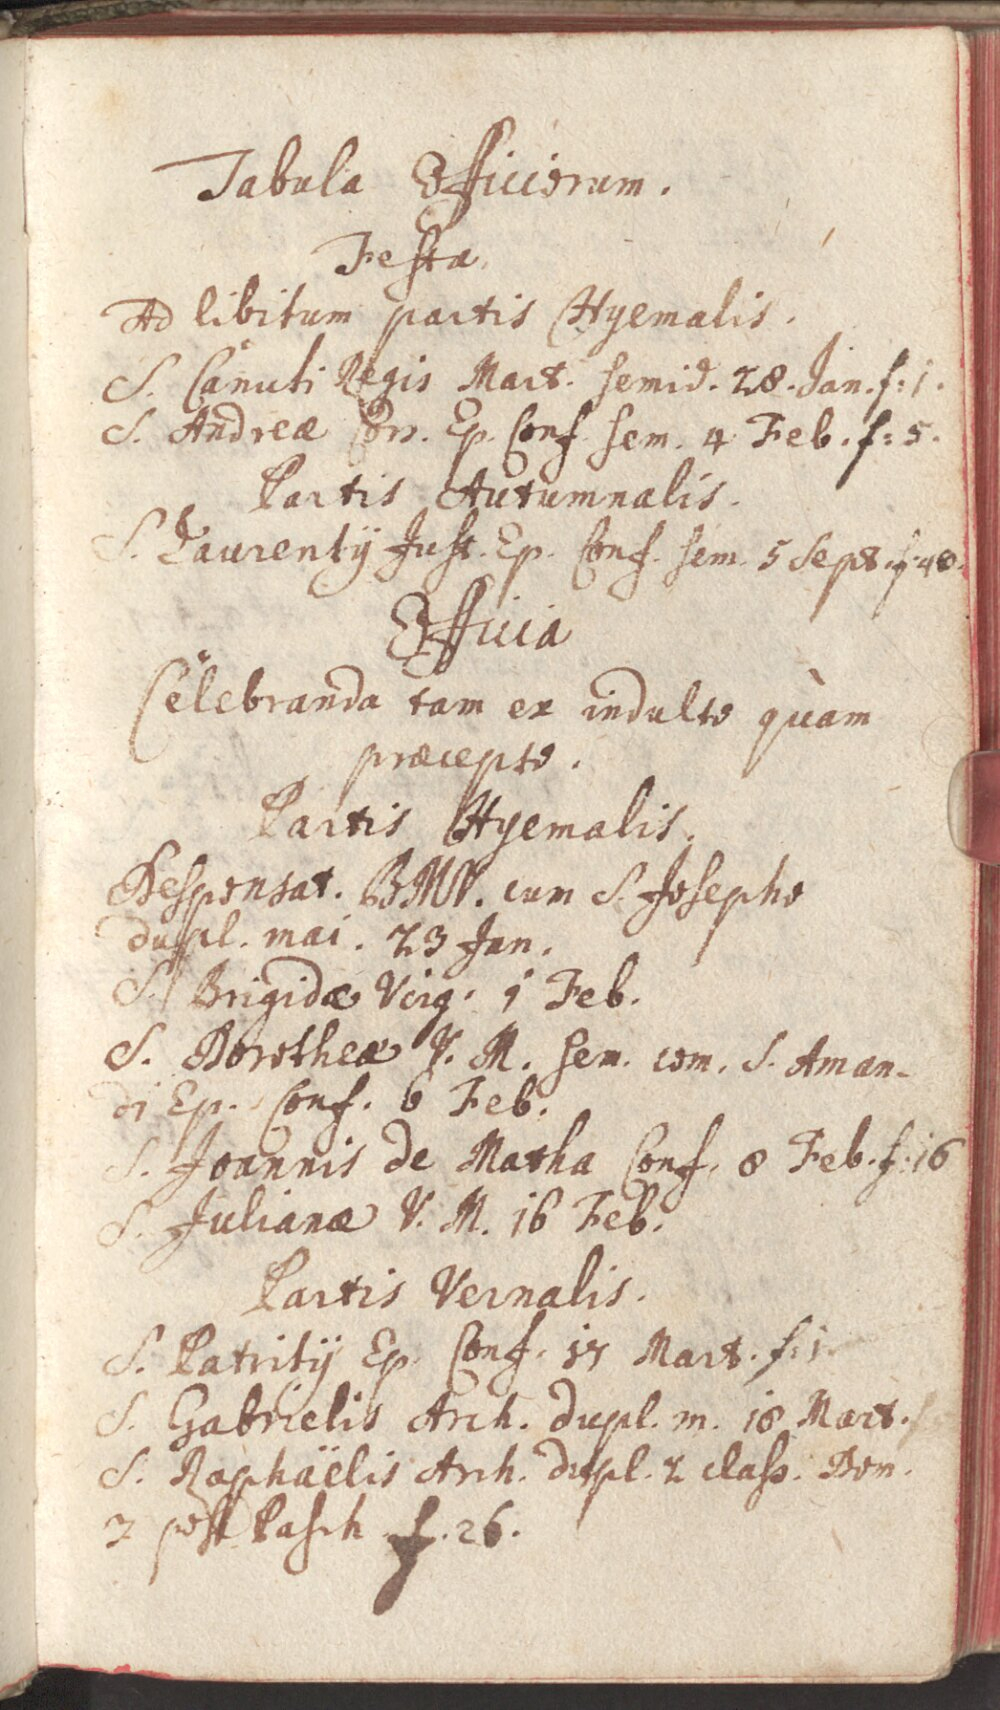 Tabula Officiorum.
Festa
Ad libitum partis Hyemalis.
S. Canuti Regis Mart. semid. 28. Jan. f: 1.
S. Andreæ Cors. Ep. Conf. sem. 4 Feb. f: 5.
Partis Autumnalis.
S. Laurentij Just. Ep. Conf. sem. 5 Sept. f. 40.
Officia
Celebranda tam ex indulto quàm
præcepto.
Partis Hyemalis.
Desponsat. BMV. cum S. Josepho
dupl. mai. 23 Jan.
S. Brigidæ Virg. 1 Feb.
S. Dorotheæ V. M. sem. com. S. Aman-
di Ep. Conf. 6 Feb.
S. Joannis de Matha Conf. 8 Feb. f: 16
S. Julianæ V. M. 16 Feb.
Partis Vernalis.
S. Patritij Ep. Conf. 17 Mart. f: 1.
S. Gabrielis Arch. dupl. m. 18 Mart.
S. Raphaëlis Arch. dupl. 2 class. Dom.
3 post Pasch f. 26.